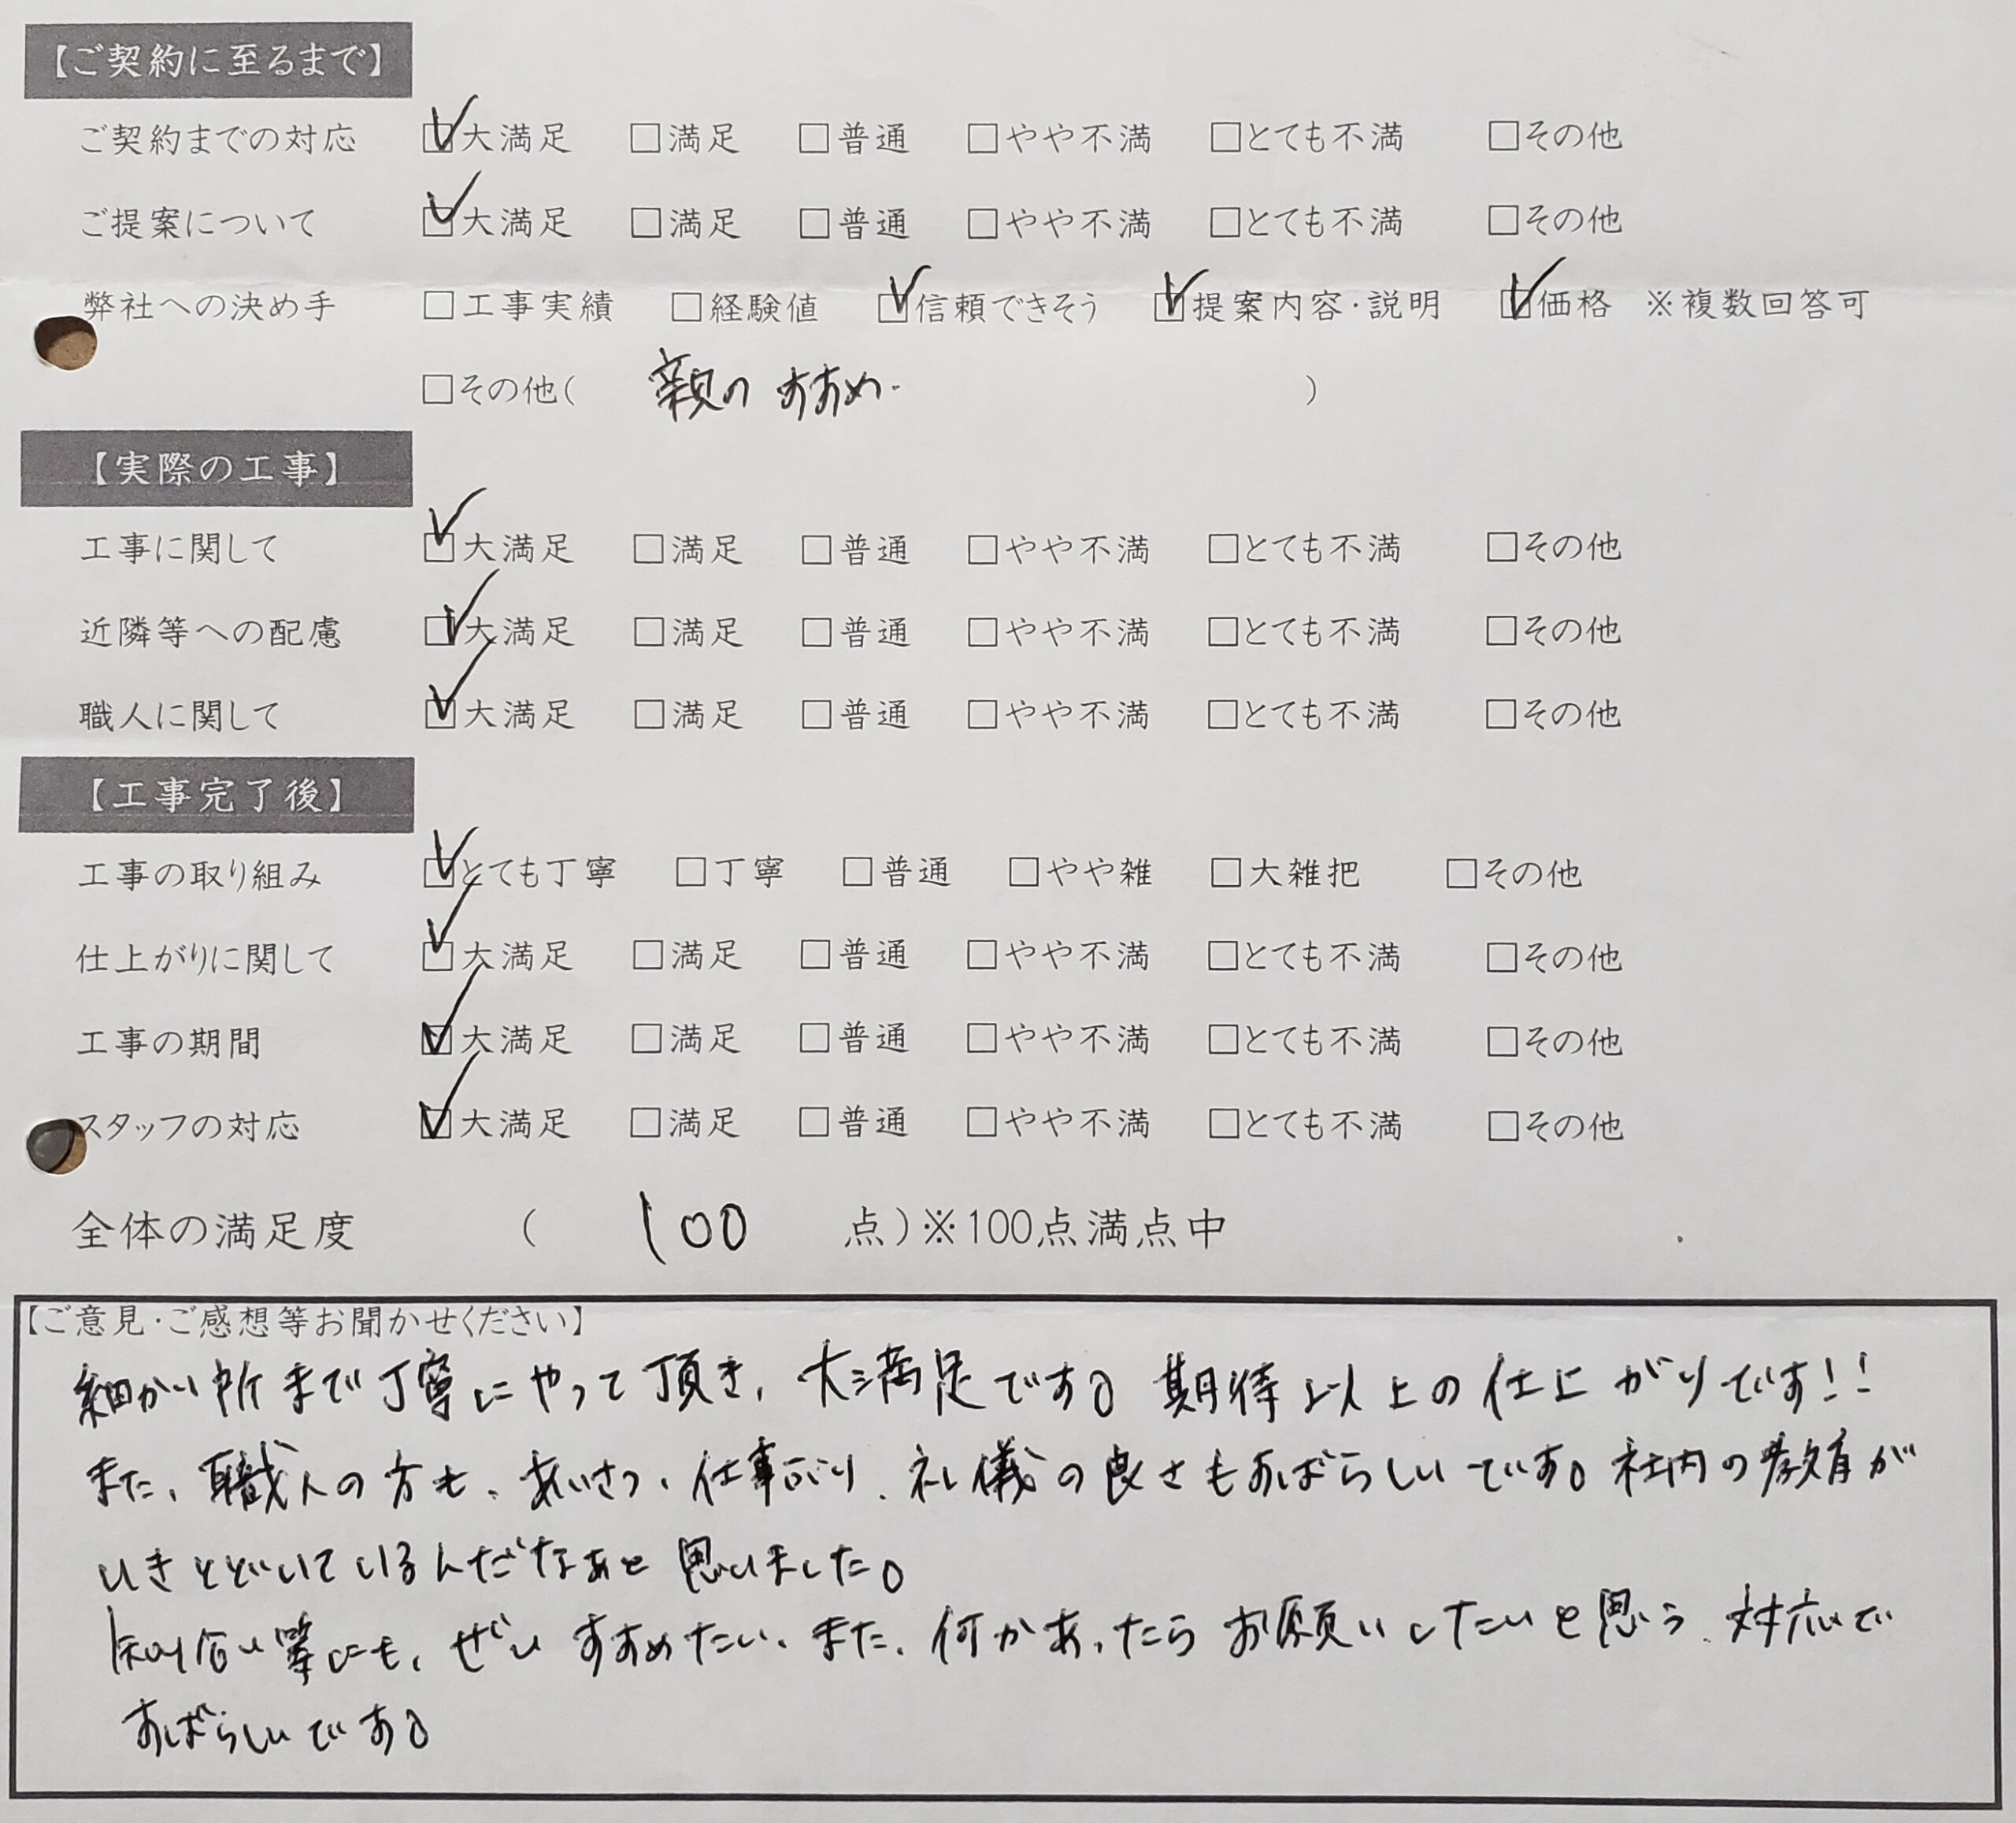 【ご契約に至るまで】
ご契約までの対応 ☑大満足 □満足 □普通 □やや不満 □とても不満 □その他
ご提案について ☑大満足 □満足 □普通 □やや不満 □とても不満 □その他
弊社への決め手 □工事実績 □経験値 ☑信頼できそう ☑提案内容・説明 ☑価格 ※複数回答可
□その他( 親のすすめ. )
【実際の工事】
工事に関して ☑大満足 □満足 □普通 □やや不満 □とても不満 □その他
近隣等への配慮 ☑大満足 □満足 □普通 □やや不満 □とても不満 □その他
職人に関して ☑大満足 □満足 □普通 □やや不満 □とても不満 □その他
【工事完了後】
工事の取り組み ☑とても丁寧 □丁寧 □普通 □やや雑 □大雑把 □その他
仕上がりに関して ☑大満足 □満足 □普通 □やや不満 □とても不満 □その他
工事の期間 ☑大満足 □満足 □普通 □やや不満 □とても不満 □その他
スタッフの対応 ☑大満足 □満足 □普通 □やや不満 □とても不満 □その他
全体の満足度 ( 100 点)※100点満点中
【ご意見・ご感想等お聞かせください】
細かい所まで丁寧にやって頂き、大満足です。期待以上の仕上がりです!!
また、職人の方も、あいさつ、仕事ぶり、礼儀の良さもすばらしいです。社内の教育が
いきとどいているんだなぁと思いました。
知り合い等にも、ぜひすすめたい、また、何かあったらお願いしたいと思う、対応で
すばらしいです。